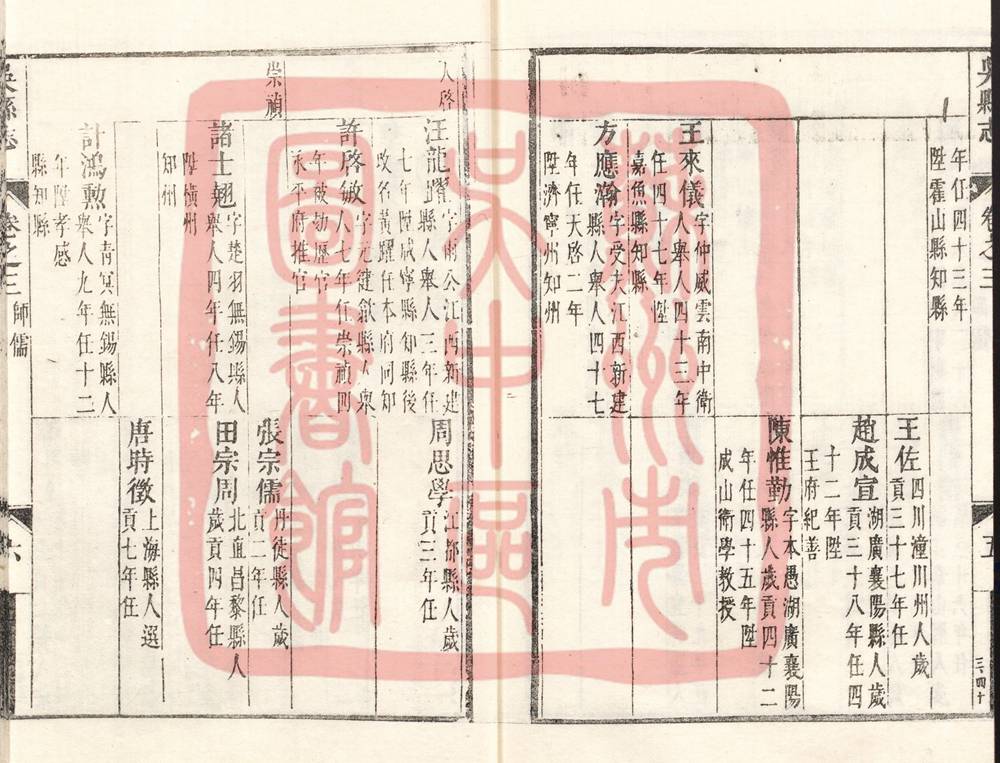 吳縣志
卷之三
五
三四十
年任四十三年
陞霍山縣知縣
王佐
四川潼川州人歲
貢三十七年任
趙成宣
湖廣襄陽縣人歲
貢三十八年任四
十二年陞
王府紀善
王來儀
字仲威雲南中衛
人舉人四十三年
任四十七年陞
嘉魚縣知縣
陳惟勤
字本愚湖廣襄陽
縣人歲貢四十二
年任四十五年陞
成山衛學教授
方應瀚
字受夫江西新建
縣人舉人四十七
年任天啓二年
陞濟寧州知州
蘇州市
吳中區
圖書館
天啓
汪龍躍
字雨公江西新建
縣人舉人三年任
七年陞咸寧縣知縣後
改名黃躍任本府同知
周思學
江都縣人歲
貢三年任
許啓敏
字元建歙縣人舉
人七年任崇禎四
年被劾歷官
永平府推官
崇禎
張宗儒
丹徒縣人歲
貢二年任
諸士翹
字楚羽無錫縣人
舉人四年任八年
陞橫州
知州
田宗周
北直昌黎縣人
歲貢四年任
計鴻勲
字青冥無錫縣人
舉人九年任十二
年陞孝感
縣知縣
唐時徵
上海縣人選
貢七年任
吳縣志
卷之三
師儒
六